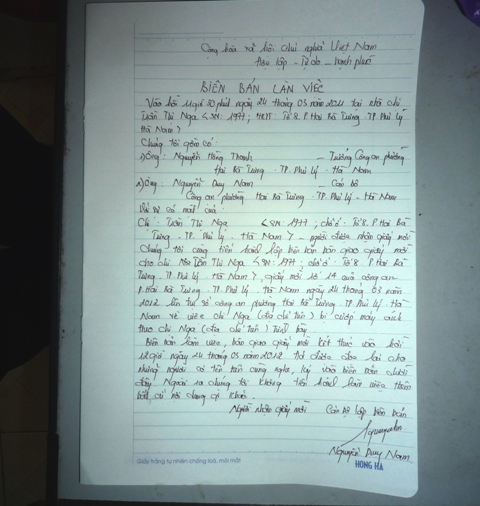 Cộng hòa xã hội chủ nghĩa Việt Nam
Độc lập - Tự do - Hạnh phúc
BIÊN BẢN LÀM VIỆC
Vào hồi 11 giờ 30 phút ngày 24 tháng 03 năm 2012 tại nhà chị
Trần Thị Nga < SN: 1977; HKTT: Tổ 8. P Hai Bà Trưng TP. Phủ Lý
Hà Nam >
Chúng tôi gồm có:
1) Ông: Nguyễn Hồng Thanh - Trưởng Công an phường
Hai Bà Trưng - TP. Phủ Lý - Hà Nam
2) Ông: Nguyễn Duy Nam - Cán bộ
Công an phường Hai Bà Trưng - TP. Phủ Lý - Hà Nam
Với sự có mặt của
Chị: Trần Thị Nga < SN: 1977, chỗ ở: Tổ 8. P. Hai Bà
Trưng - TP. Phủ Lý - Hà Nam > - người được nhận giấy mời
Chúng tôi cùng tiến hành lập biên bản bàn giao giấy mời
cho chị Trần Thị Nga < SN: 1977; chỗ ở: Tổ 8 P. Hai Bà
Trưng TP. Phủ Lý Hà Nam >, giấy mời số 14 của công an
P. Hai Bà Trưng TP. Phủ Lý Hà Nam ngày 24 tháng 03 năm
2012 lên trụ sở công an phường Hai Bà Trưng TP. Phủ Lý Hà
Nam về việc chị Nga (địa chỉ trên) bị cướp máy ảnh
theo chị Nga (địa chỉ trên) trình bày.
Biên bản làm việc, bàn giao giấy mời kết thúc vào hồi
12 giờ ngày 24 tháng 03 năm 2012 đã được đọc lại cho
những người có tên trên cùng nghe, ký vào biên bản dưới
đây. Ngoài ra chúng tôi không tiến hành làm việc thêm
bất cứ nội dung gì khác.
Người nhận giấy mời Cán bộ lập biên bản
Nguyễn Duy Nam
Giấy trắng tự nhiên chống loá, mỏi mắt HONG HA